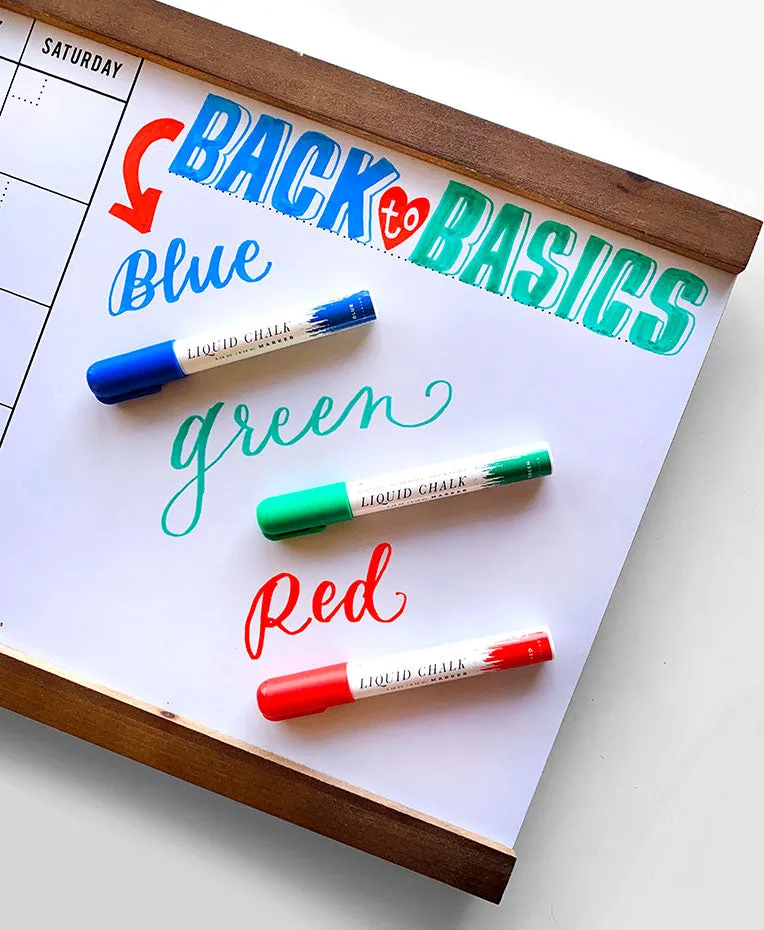 SATURDAY
BACK to BASICS
Blue
LIQUID CHALK
MARKER
BLUE
green
LIQUID CHALK
MARKER
GREEN
Red
LIQUID CHALK
MARKER
RED